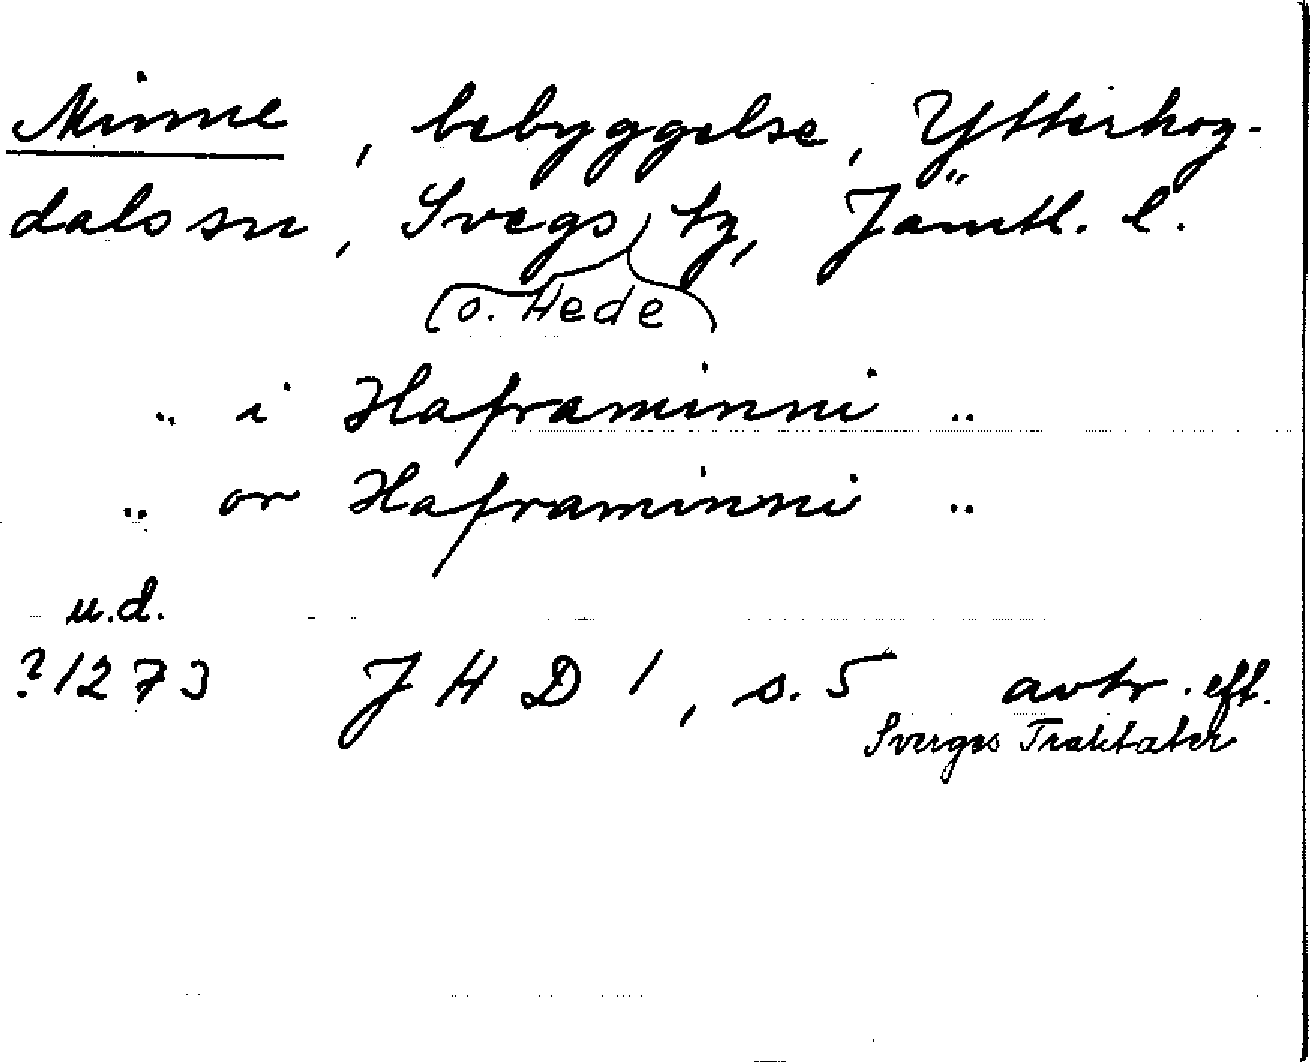 Minne, bebyggelse, Ytterhog-
dals sn, Svegs tg, Jämtl. l.
(o. Hede)
" i Haframinni "
" or Haframinni "
u.d.
?1273 JHD 1, s. 5 avtr. eft.
Sverges Traktater